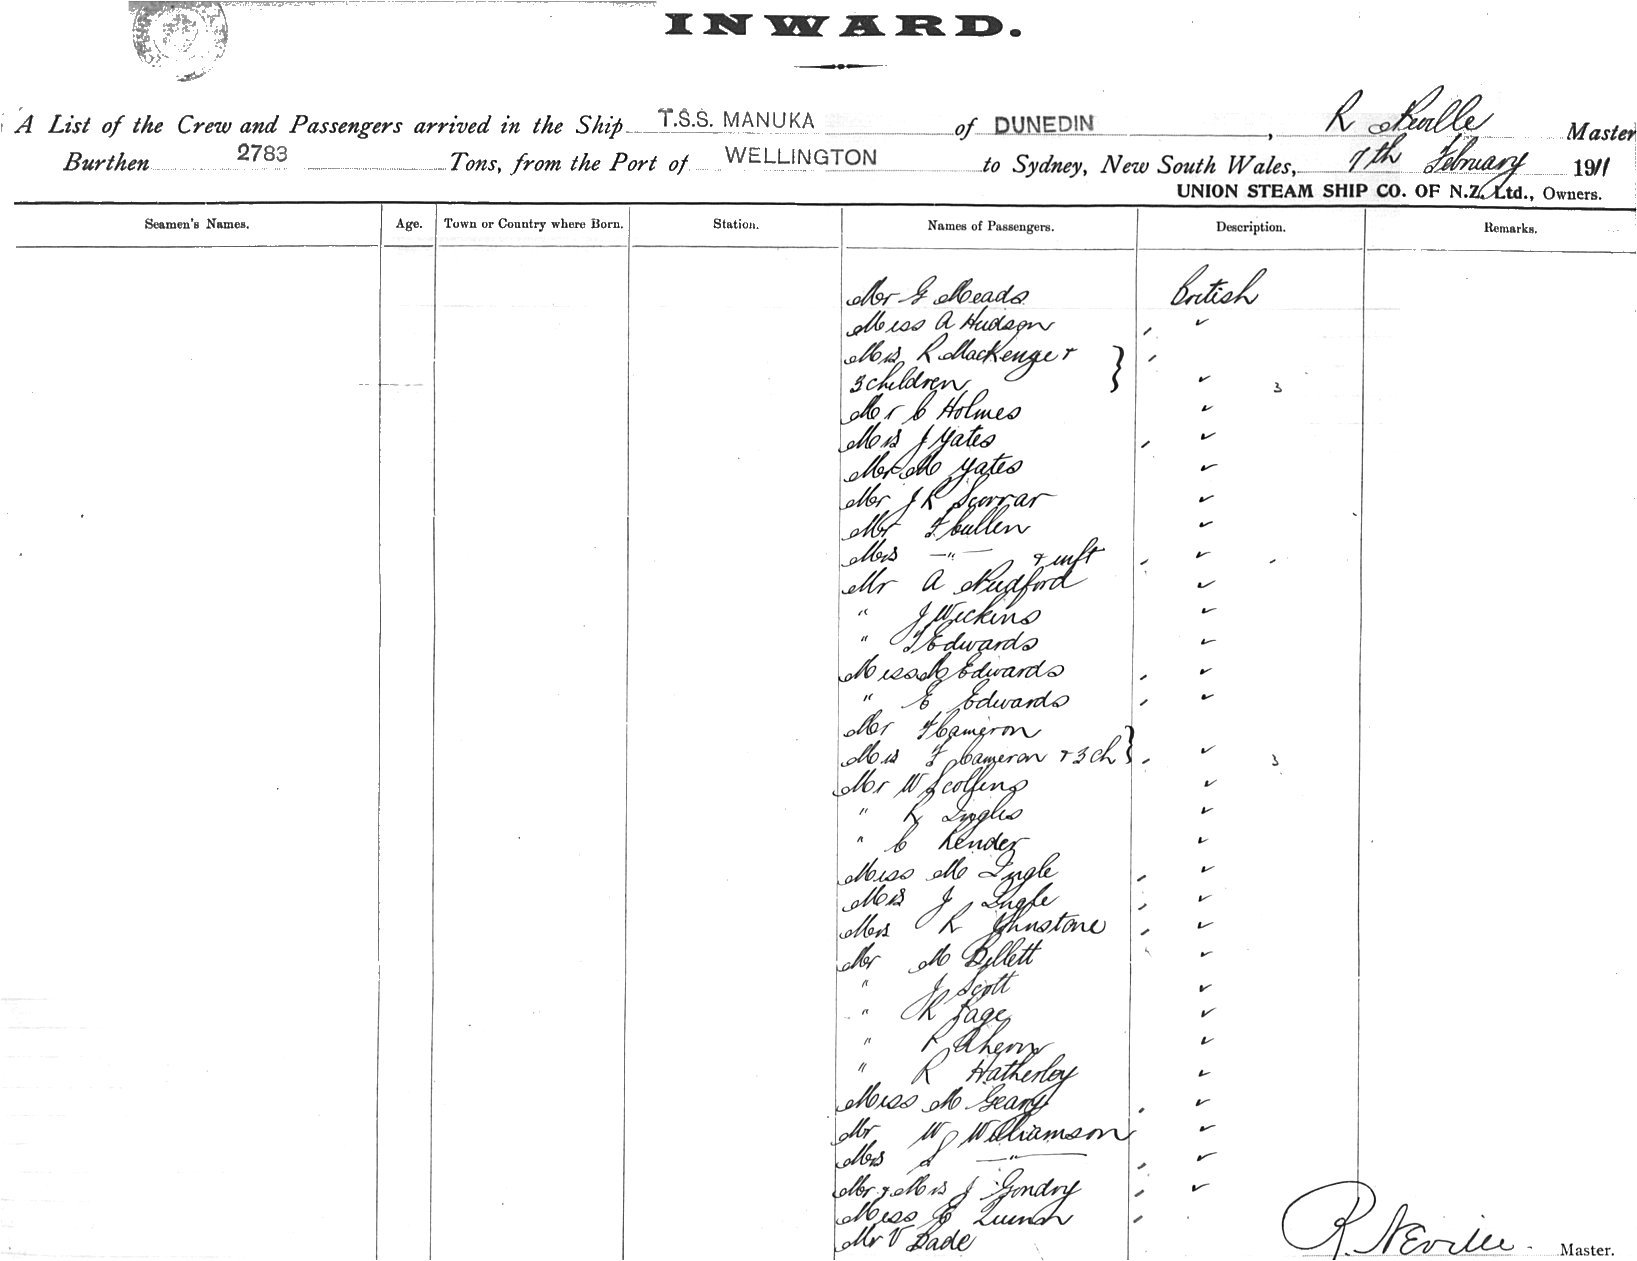 INWARD.
A List of the Crew and Passengers arrived in the Ship T.S.S. MANUKA of DUNEDIN, R Neville Master
Burthen 2783 Tons, from the Port of WELLINGTON to Sydney, New South Wales, 7th February 1911
UNION STEAM SHIP CO. OF N.Z. Ltd., Owners.
Seamen's Names. Age. Town or Country where Born. Station. Names of Passengers. Description. Remarks.
Mr G Meads British
Miss A Hudson
Mrs R MacKenzie +
3 children 3
Mr C Holmes
Mrs J Yates
Mr M Yates
Mr J R
Mr F Cullen
Mrs —"— & inft
Mr A Pudford
" J Wickins
" F Edwards
Miss M Edwards
" E Edwards
Mr F Cameron
Mrs F Cameron + 3 ch 3
Mr W
" R Inglis
" C Render
Miss M Ingle
Mrs J Ingle
Mrs R Johnstone
Mr M Billett
" J Scott
" R Page
" P Ahern
" R Hatherley
Miss M Geary
Mr W J Williamson
Mrs —"—
Mr & Mrs J Gondry
Miss E Quinn
Mr V Dade
R. Neville. Master.